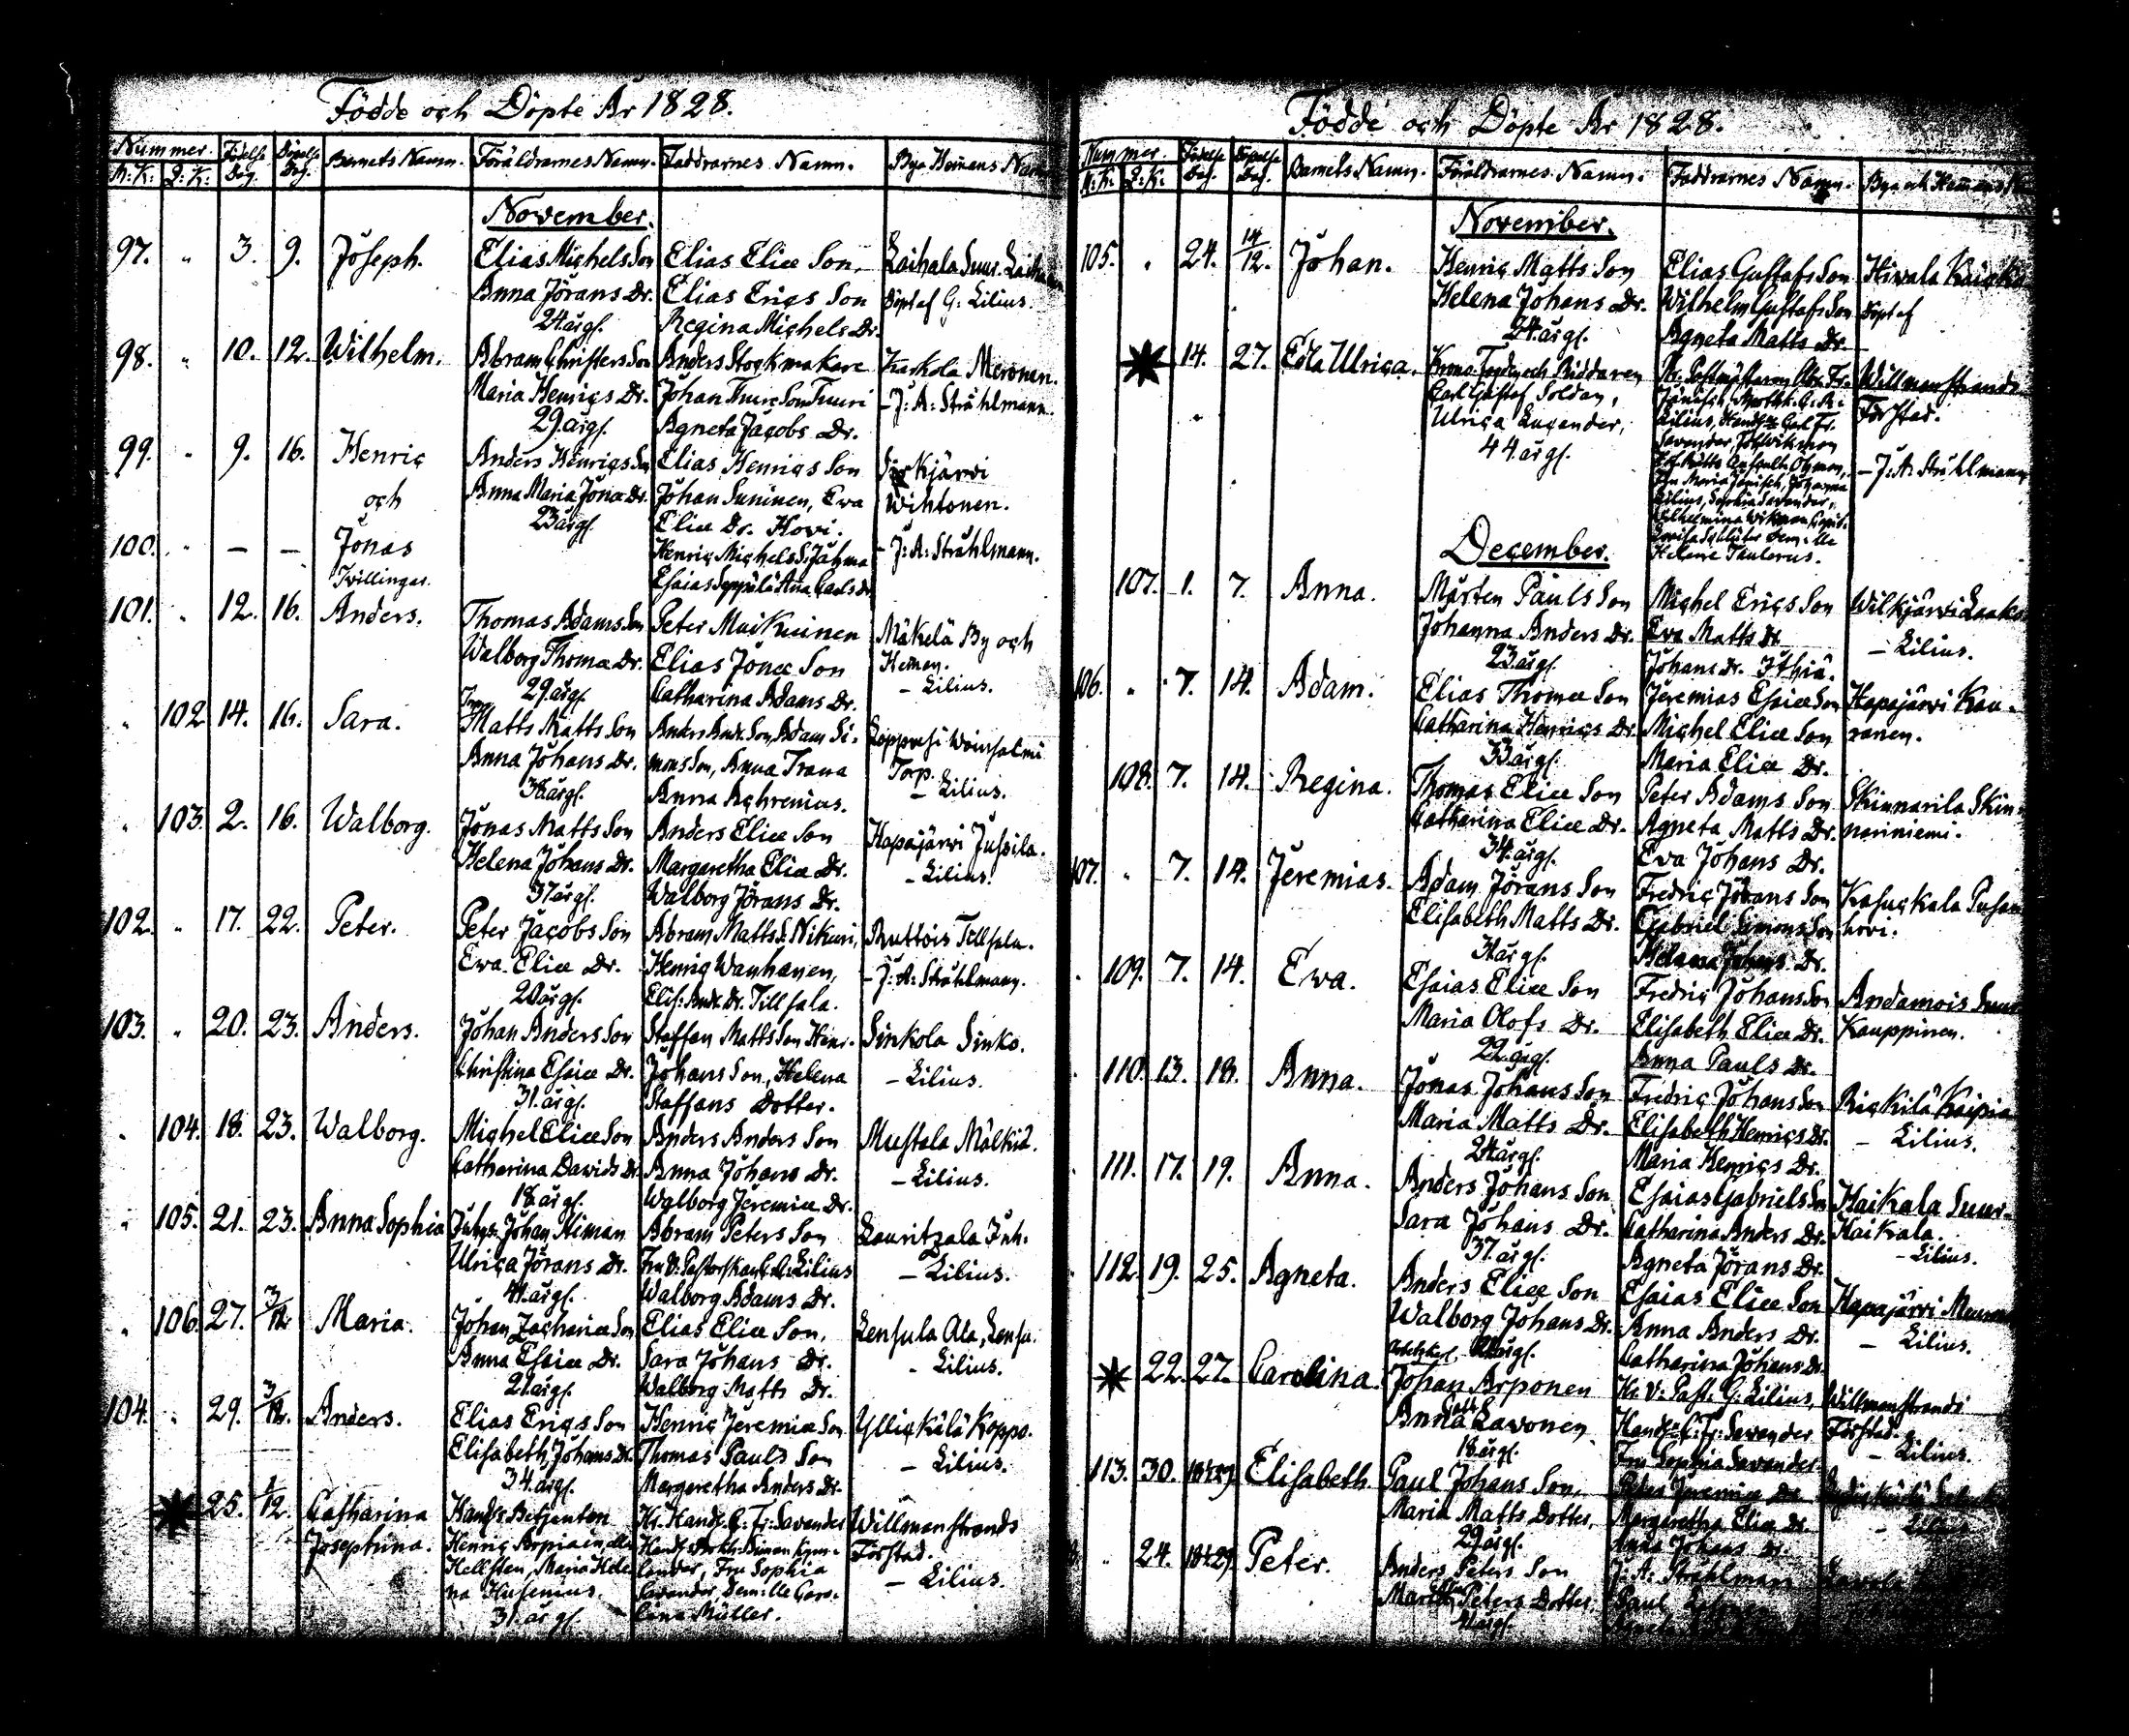 Födde och Döpte År 1828.
Nummer. Födelse Döpelse Barnets Namn. Föräldrarnes Namn. Faddrarnes Namn. Bya Hemans Namn
M: K: Q: K: Dag. Dag.
November.
97. " 3. 9. Joseph. Elias Michels Son Elias Eliæ Son, Laihala Suur Laihala
Anna Jörans Dr. Elias Erics Son Döpt af G: Lilius.
24 årg. Regina Michels Dr.
98. " 10. 12. Wilhelm. Abram Christers Son Anders Stockmakare Karkola Meronen.
Maria Henrics Dr. Johan Thure Son Tuuri – J: A: Stråhlmann.
29. årg. Agneta Jacobs Dr.
99. " 9. 16. Henric Anders Henrics Son Elias Henrics Son Sirkjärwi
och Anna Maria Jonæ Dr. Johan Suninen, Ewa Wihtonen.
23 årg. Eliæ Dr. Hovi.
100. " – – Jonas Henric Michels S. – J: A: Stråhlmann.
Tvillingar. Esaias Seppälä Anna Carls Dr
101. " 12. 16. Anders. Thomas Adams Son Peter Muikuinen Mäkelä By och
Walborg Thomæ Dr. Elias Jonæ Son Heman.
29 årg. Catharina Adams Dr. – Lilius.
" 102 14. 16. Sara. Matts Matts Son Anders And. Son, Adam Si-
Anna Johans Dr. mons Son, Anna Trana Torp.
36 årg. Anna Aghrenius. – Lilius.
" 103. 2. 16. Walborg. Jonas Matts Son Anders Eliæ Son Hapajärwi Jussila.
Helena Johans Dr. Margaretha Eliæ Dr. – Lilius.
37 årg. Walborg Jörans Dr.
102. " 17. 22. Peter. Peter Jacobs Son Abram Matts S. Nikuri, Ruttois Tillsala.
Ewa Eliæ Dr. Henric Wanhanen, – J: A: Stråhlmann.
20 årg. Elis: And. Dr. Tillsala.
103. " 20. 23. Anders. Johan Anders Son Staffan Matts Son Henr. Sinkola Sinko.
Christina Esaiæ Dr. Johans Son, Helena – Lilius.
31. årg. Staffans Dotter.
" 104. 18. 23. Walborg. Michel Eliæ Son Anders Anders Son Mustala Mälkiä.
Catharina Davids Dr Anna Johans Dr. – Lilius.
18 årg. Walborg Jeremiæ Dr.
" 105. 21. 23. Anna Sophia Johan Himan Abram Peters Son Lauritzala Inh.
Ulrica Jörans Dr. Fru V: Pastorskan Lilius – Lilius.
41. årg. Walborg Adams Dr.
" 106. 27. 3/12. Maria. Johan Zachariæ Son Elias Eliæ Son, Lensula Ala, Lensu.
Anna Esaiæ Dr. Sara Johans Dr. – Lilius.
21 årg. Walborg Matts Dr.
104. " 29. 3/12. Anders. Elias Erics Son Henric Jeremiæ Son Yllickälä Koppo.
Elisabeth Johans Dr. Thomas Pauls Son – Lilius.
34. årg. Margaretha Anders Dr.
✷ 25. 1/12. Catharina Handls Betjenten Hr. Handl. C: Fr: Savander Willmanstrands
Josephina. Henric Förstad.
Hellsten, Maria Hele- Fru Sophia – Lilius.
na Husenius. Savander, Dem:lle Caro-
31. årg. lina Müller.
Födde och Döpte År 1828.
Nummer. Födelse Döpelse Barnets Namn. Föräldrarnes Namn. Faddrarnes Namn. Bya och Hemans
M: K: Q: K: Dag. Dag.
November.
105. " 24. 14/12. Johan. Henric Matts Son Elias Gustafs Son Hiwala
Helena Johans Dr. Wilhelm Gustafs Son Döpt af
24. årg. Agneta Matts Dr.
✷ 14. 27. Edla Ulrica. och Riddaren Hr. Postmästaren Willmanstrands
Carl Gustaf Soldan, Förstad.
Ulrica Lucander, Lilius, Carl Fr.
44. årg. Savander – J: A: Stråhlmann
Maria Jänisch, Johanna
Lilius, Sophia Savander,
Wilhelmina Wikman
Lovisa Dem:lle
Helene Thulerus.
December.
107. 1. 7. Anna. Mårten Pauls Son Michel Erics Son Wilkjärwi
Johanna Anders Dr. Eva Matts Dr – Lilius.
23. årg. Johans Dr.
106. " 7. 14. Adam. Elias Thomæ Son Jeremias Esaiæ Son Hapajärwi Kau-
Catharina Henrics Dr. Michel Eliæ Son ranen.
33 årg. Maria Eliæ Dr.
108. 7. 14. Regina. Thomas Eliæ Son Peter Adams Son Skinnarila Skin-
Catharina Eliæ Dr. Agneta Matts Dr. nariniemi.
34. årg. Eva Johans Dr.
107. " 7. 14. Jeremias. Adam Jörans Son Fredric Jörans Son Kasuckala
Elisabeth Matts Dr. Gabriel Simons Son hovi.
årg. Helena Johans Dr.
109. 7. 14. Ewa. Esaias Eliæ Son Fredric Johans Son Andamois Suur
Maria Olofs Dr. Elisabeth Eliæ Dr. Kauppinen.
22 årg. Anna Pauls Dr.
110. 13. 18. Anna. Jonas Johans Son Fredric Johans Son Rickilä Kaipia
Maria Matts Dr. Elisabeth Henrics Dr. – Lilius.
24 årg. Maria Henrics Dr.
111. 17. 19. Anna. Anders Johans Son Esaias Gabriels Son Haikala Suur-
Sara Johans Dr. Catharina Anders Dr. Haikala.
37. årg. Agneta Jörans Dr. – Lilius.
112. 19. 25. Agneta. Anders Eliæ Son Esaias Eliæ Son Hapajärwi
Walborg Johans Dr. Anna Anders Dr. – Lilius.
årg. Catharina Johans Dr
✷ 22. 27. Carolina. Johan Arponen Hr. V: Past: G: Lilius, Willmanstrands
Anna Lavonen Handl: C: Fr: Savander Förstad.
18 årg. Fru Sophia Savander – Lilius.
113. 30. Elisabeth. Paul Johans Son, Petra Jeremiæ Dr
Maria Matts Dotter, Margaretha Eliæ Dr. – Lilius
29 årg. Anna Johans Dr.
" 24. Peter. Anders Peters Son J: A: Stråhlman
Maria Peters Dotter, Paul
årg.